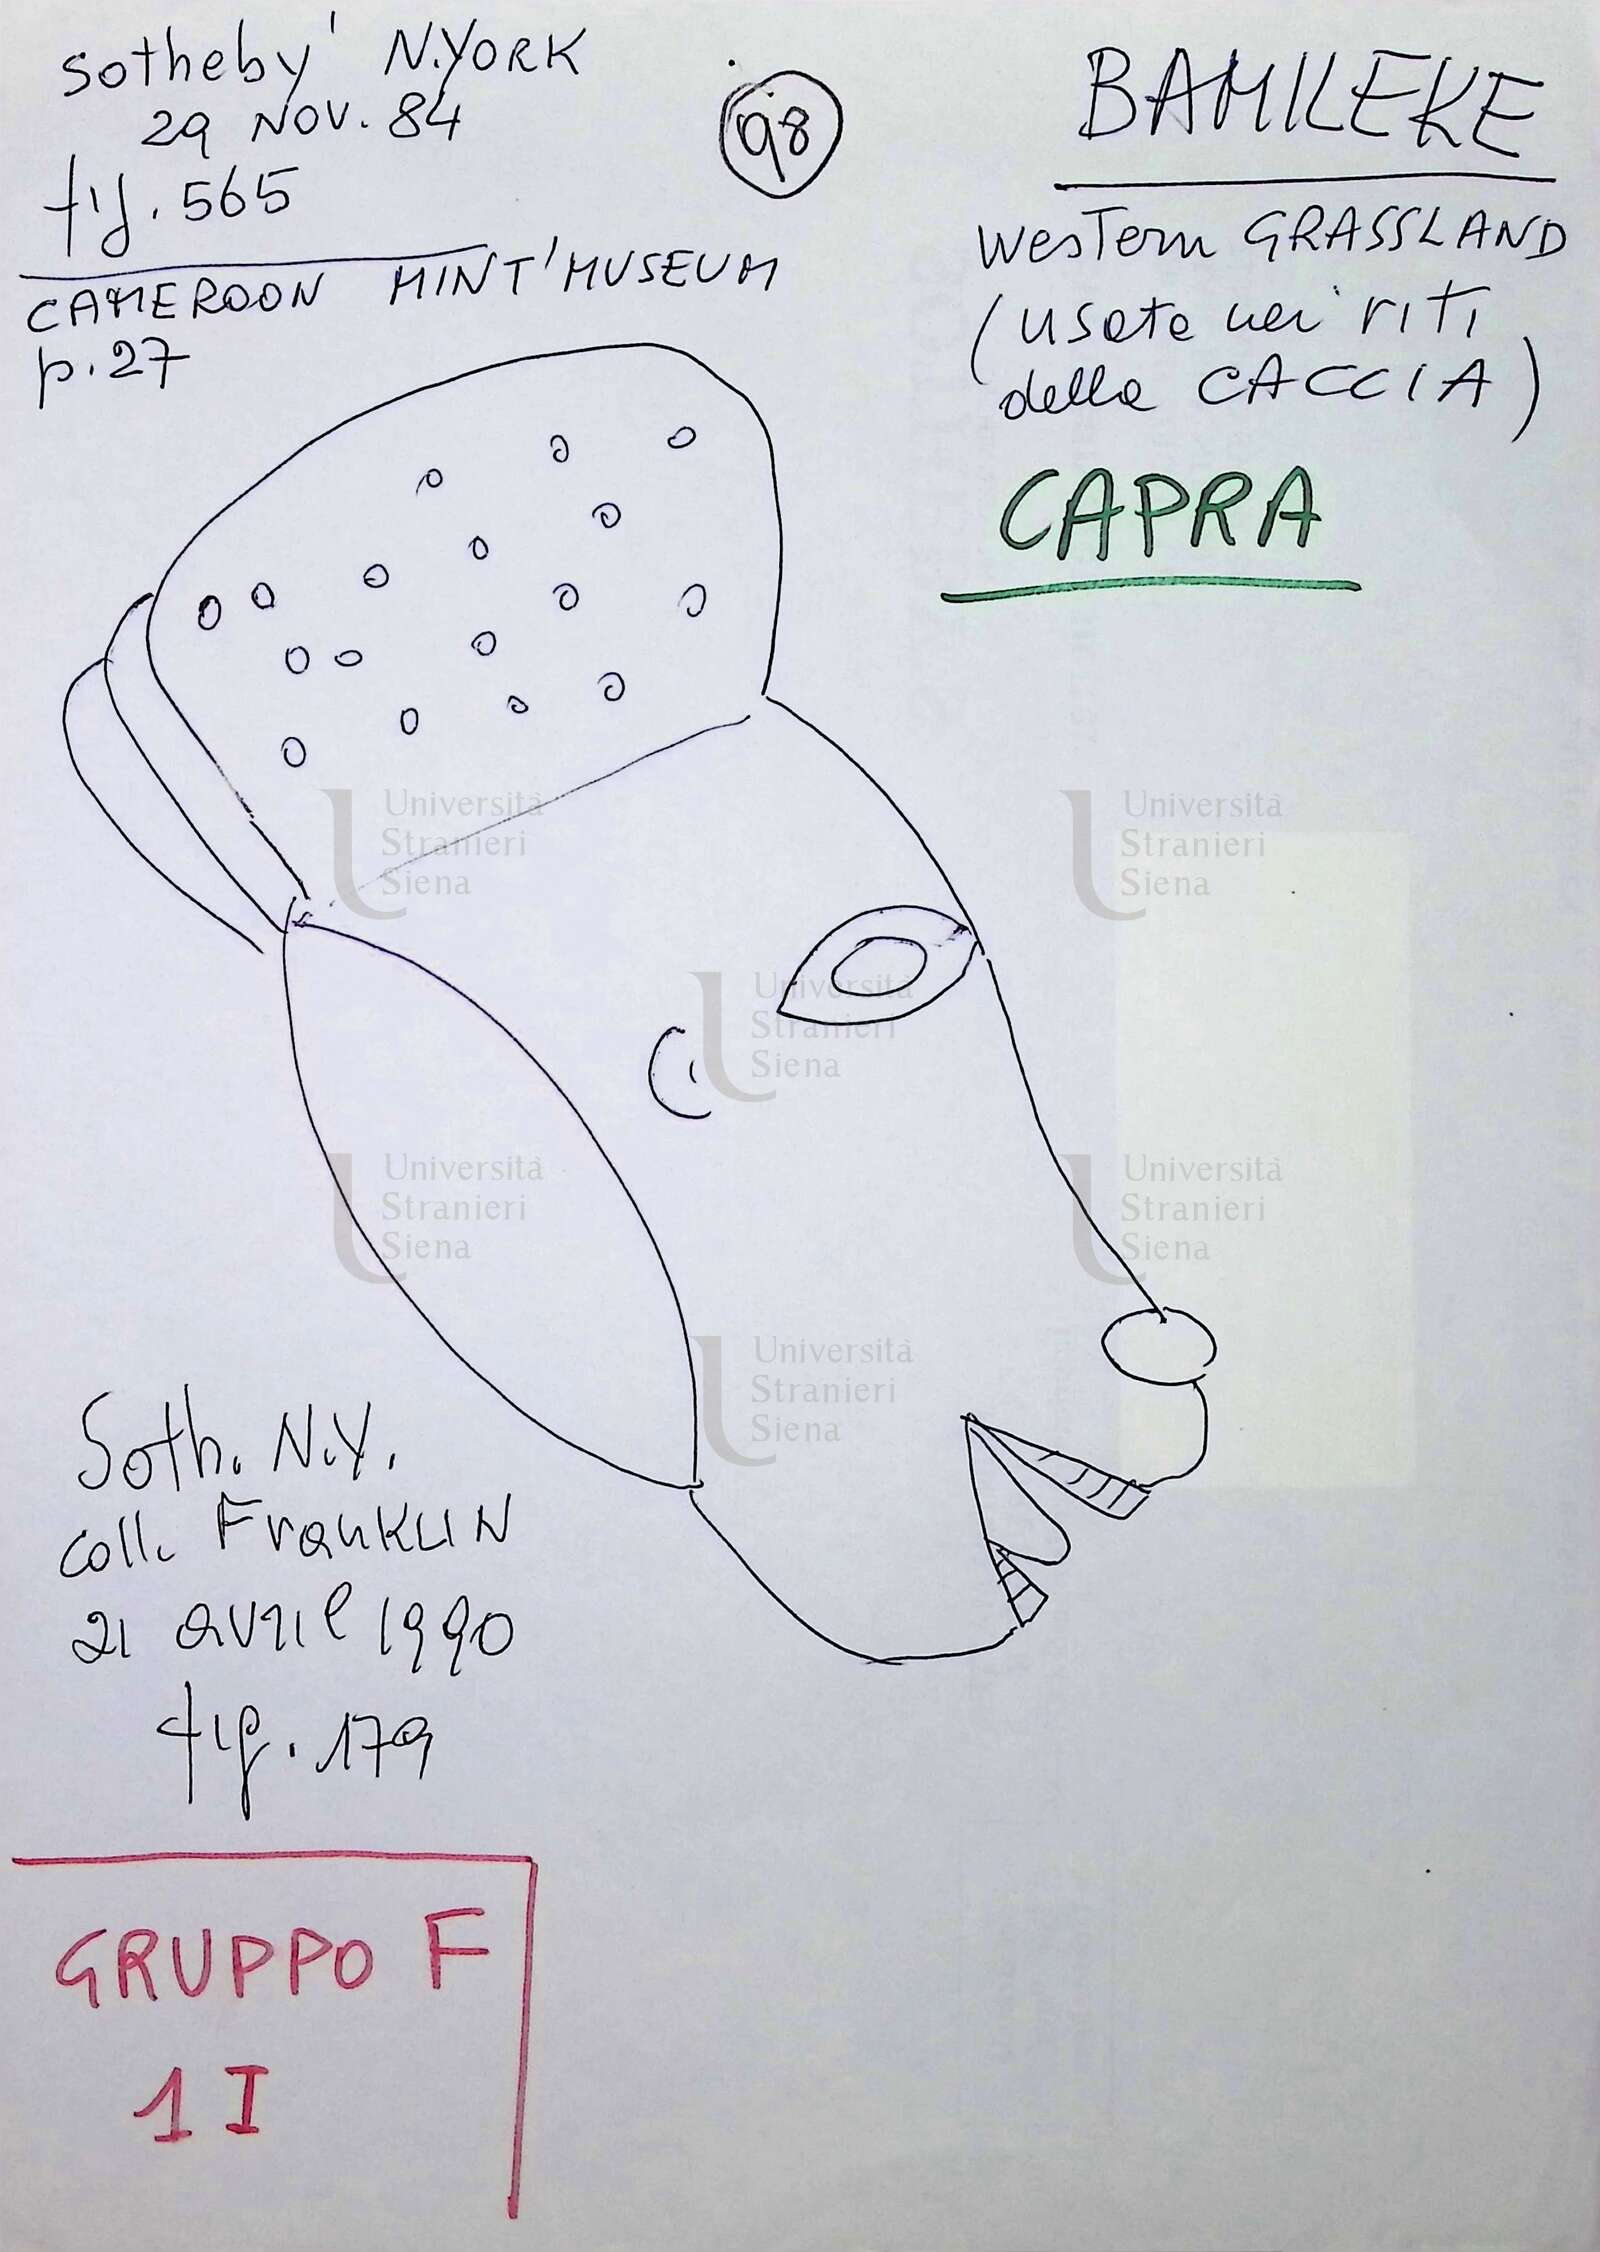 Sotheby' N.YORK
29 NOV. 84
fig. 565
CAMEROON MINT' MUSEUM
p. 27
98
BAMILEKE
Western GRASSLAND
(usate nei riti
della CACCIA)
CAPRA
Università
Stranieri
Siena
Università
Stranieri
Siena
Università
Stranieri
Siena
Università
Stranieri
Siena
Università
Stranieri
Siena
Università
Stranieri
Siena
Soth. N.Y.
coll. FranKLIN
21 avril 1990
fig. 179
GRUPPO F
1 I